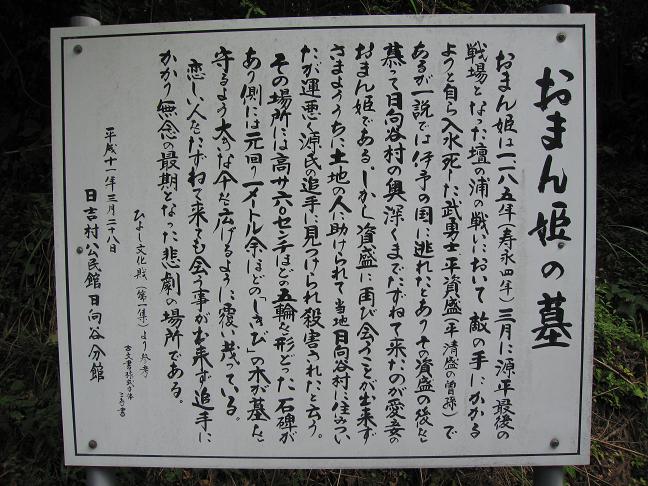 おまん姫の墓
おまん姫は一一八五年(寿永四年)三月に源平最後の
戦場となった壇の浦の戦いにおいて敵の手にかかる
よりと自ら入水死した武勇士平資盛(平清盛の曽孫)で
あるが一説では伊予の国に逃れたとありその資盛の後を
慕って日向谷村の奥深くまでたずねて来たのが愛妾の
おまん姫である。しかし資盛に再び会うことが出来ず
さまよううちに土地の人に助けられて当地日向谷村に住みつい
たが運悪く源氏の追手に見つけられ殺害されたと云う。
その場所には高サ六〇センチほどの五輪を形どった石碑が
あり側には元回り一メートル余ほどの「しきび」の木が墓を
守るよう大きな傘を広げるように覆い茂っている。
恋しい人をたずねて来ても会う事が出来ず追手に
かかり無念の最期となった悲劇の場所である。
ひよし文化財(第一集)より参考
平成十一年三月二十八日
日吉村公民館日向谷分館